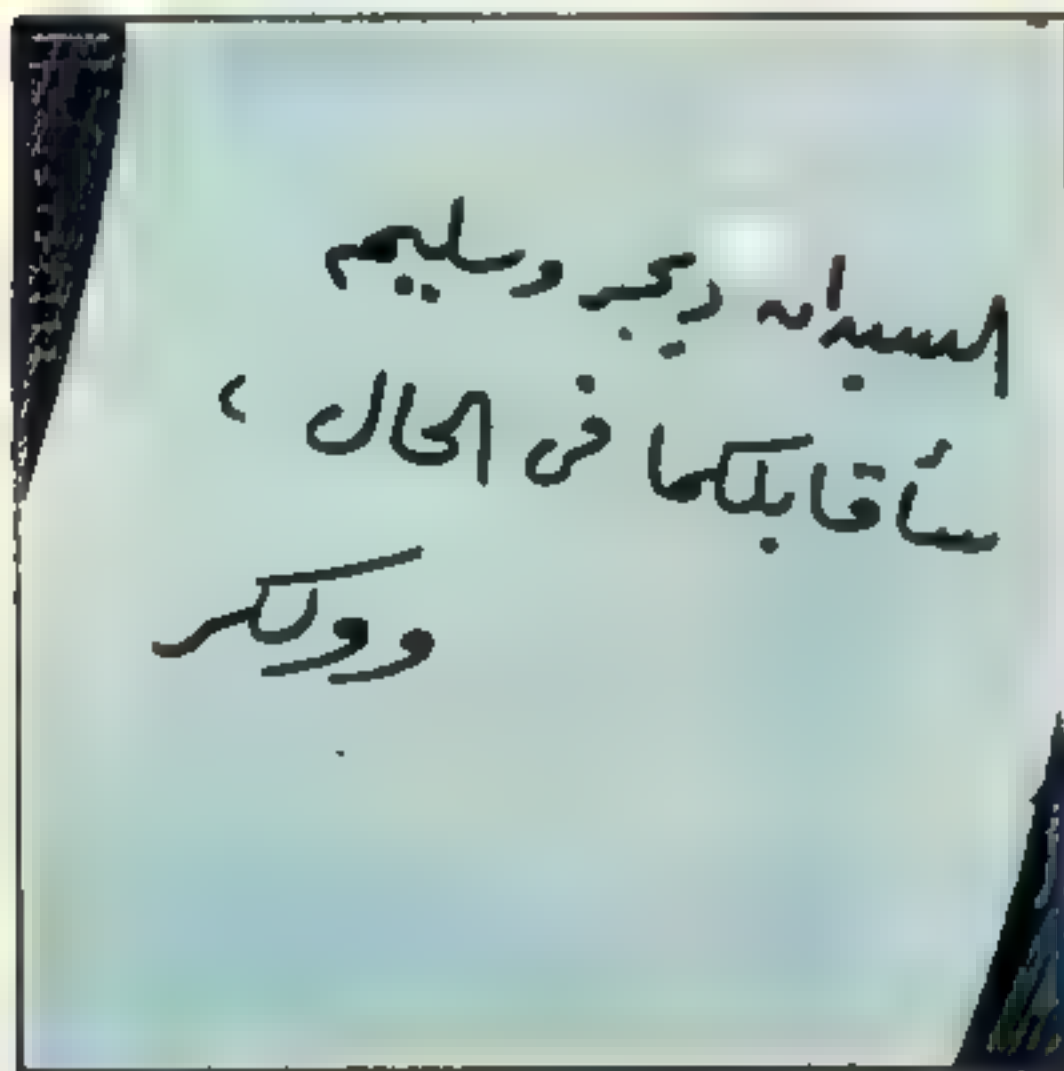 السيدان ديجبر وسليم
سأقابلكما فى الحال ،
وولكر